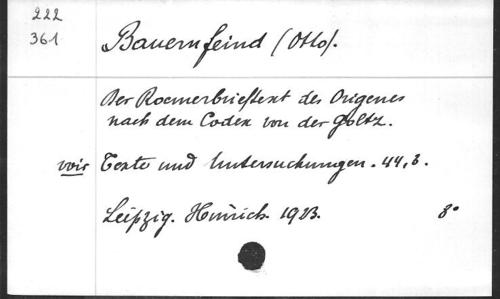 222
361
Bauernfeind (Otto).
Der Roemerbrieftext des Origenes
nach dem Codex von der Goltz.
voir Texte und Untersuchungen. 44,3.
Leipzig. Hinrich. 1923. 8°